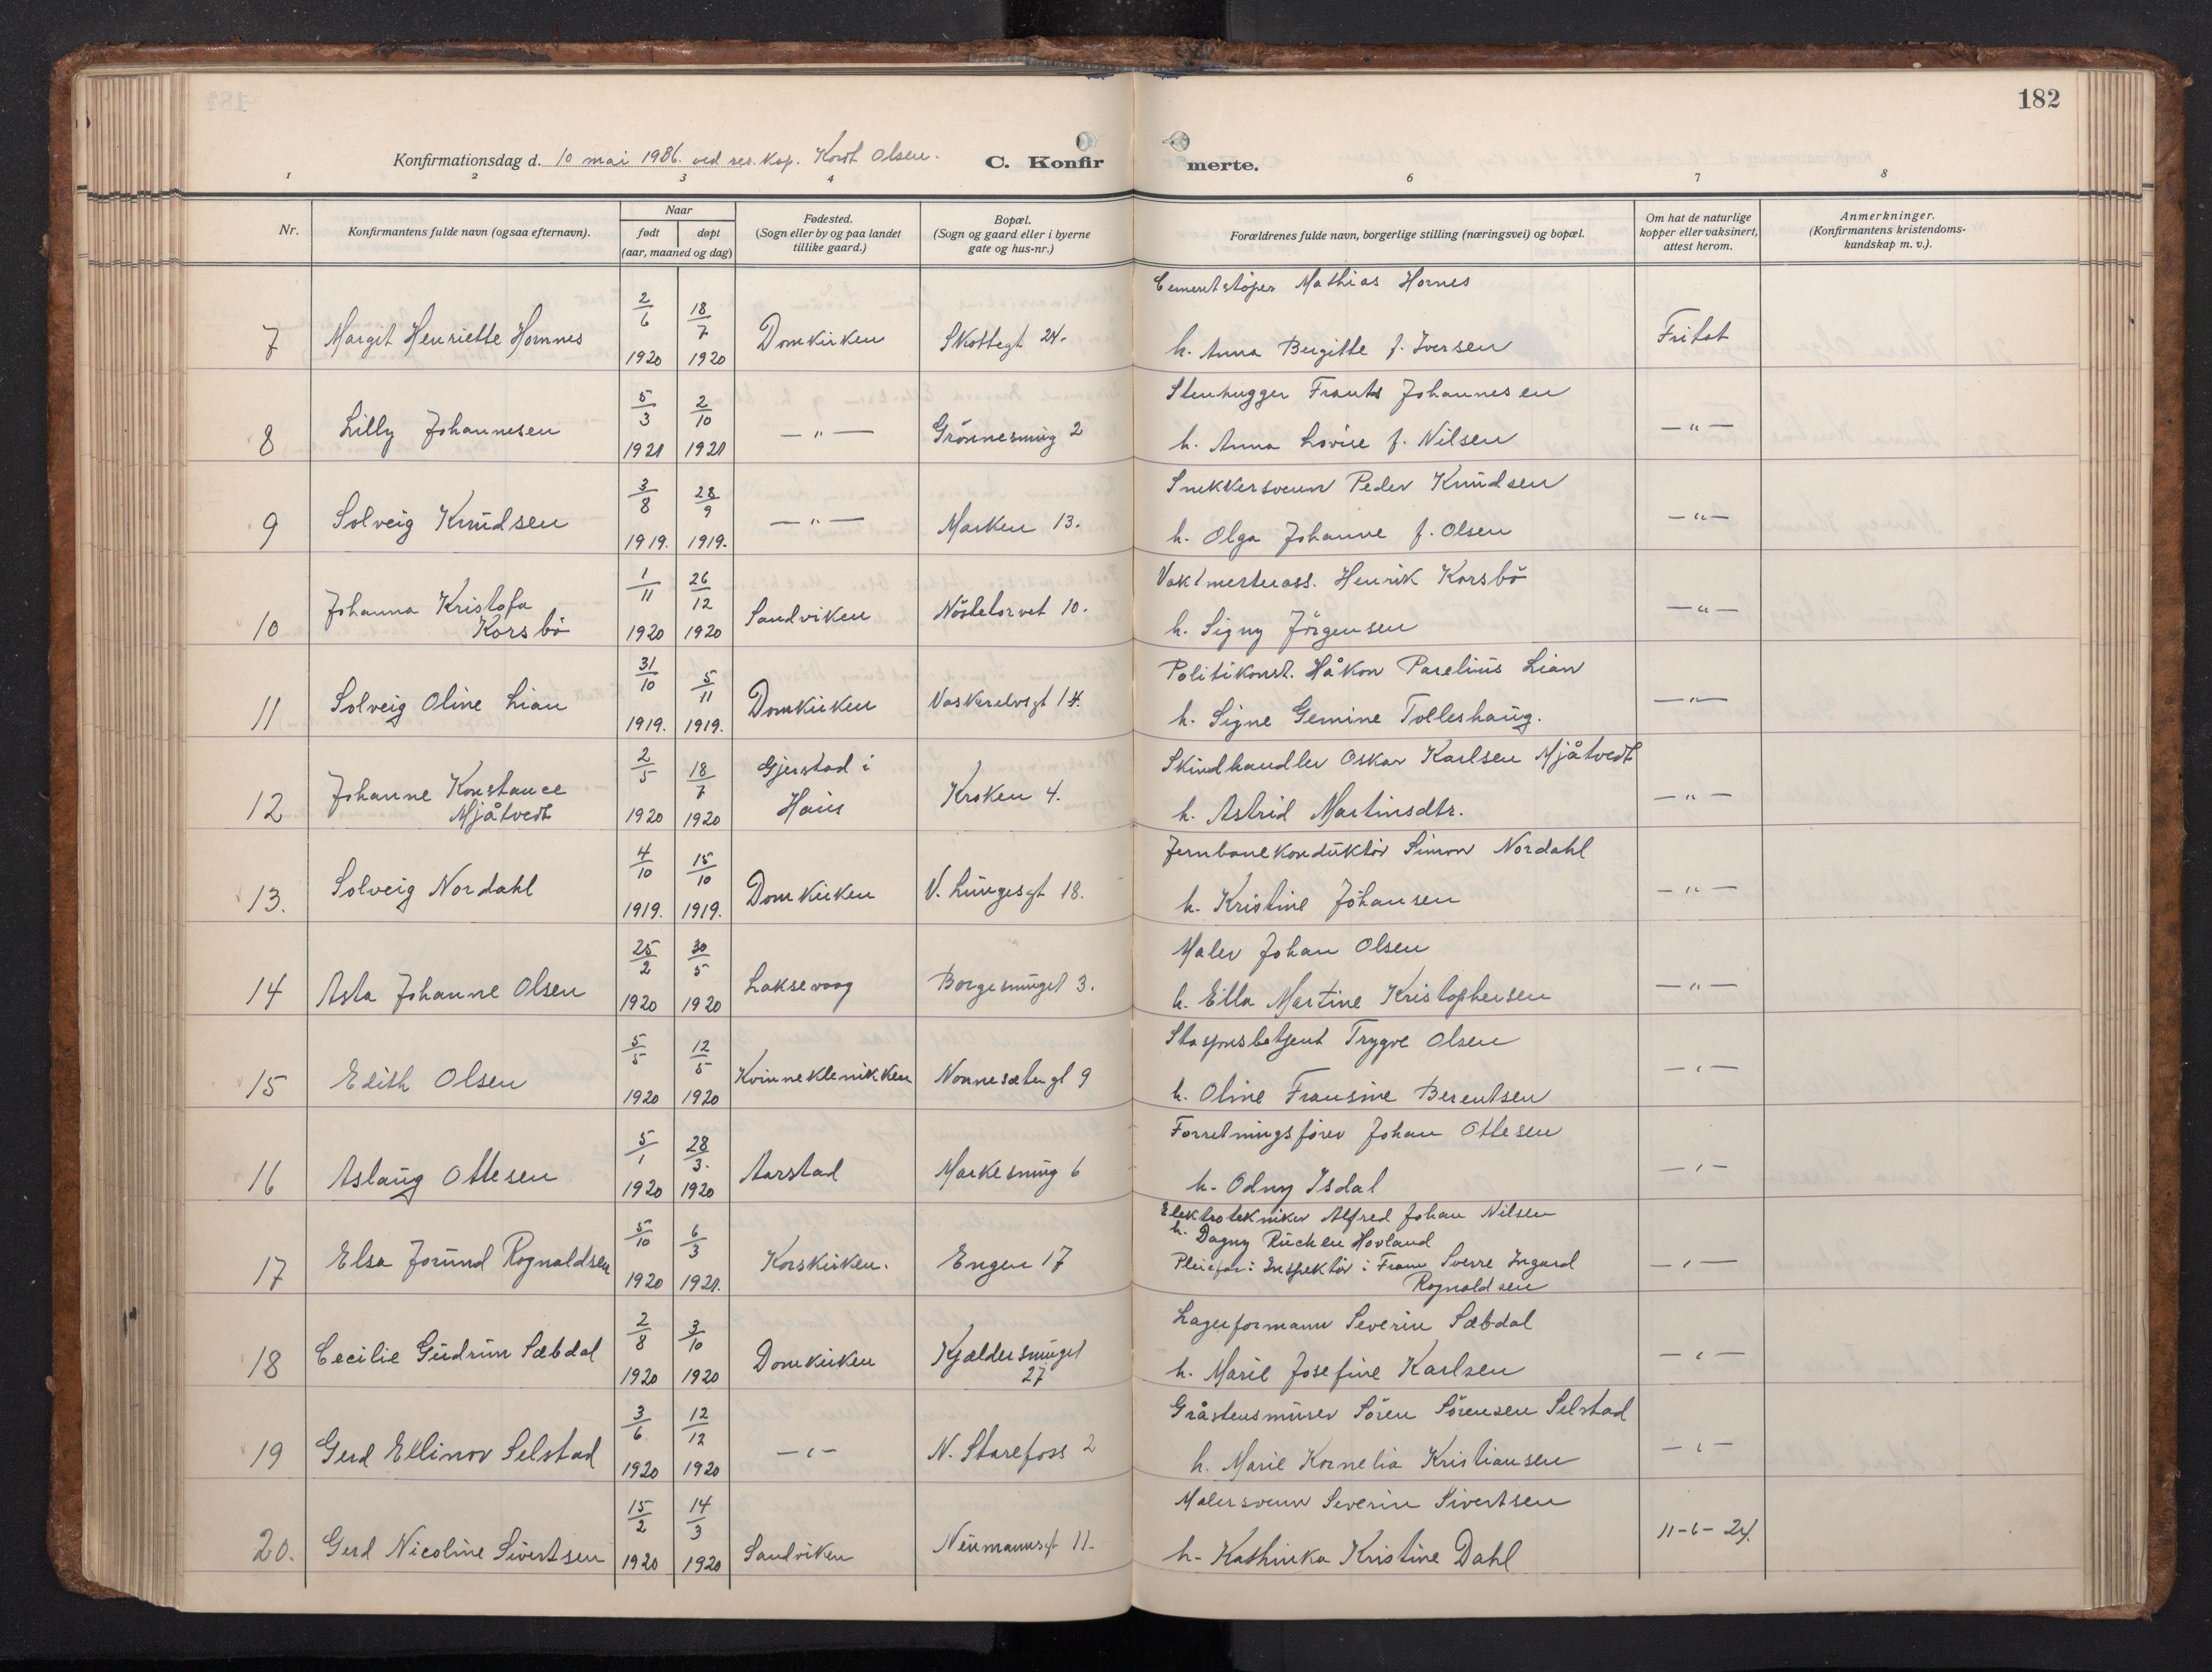 182
Konfirmationsdag d. 10 mai 1936. ved res. kap. Kordt Olsen.
C. Konfirmerte.
1 2 3 4 6 7 8
Nr.
Konfirmantens fulde navn (ogsaa efternavn).
Naar
født døpt
(aar, maaned og dag)
Fødested.
(Sogn eller by og paa landet
tillike gaard.)
Bopæl.
(Sogn og gaard eller i byerne
gate og hus-nr.)
Forældrenes fulde navn, borgerlige stilling (næringsvei) og bopæl.
Om hat de naturlige
kopper eller vaksinert,
attest herom.
Anmerkninger.
(Konfirmantens kristendoms-
kundskap m. v.).
7 Margit Henriette Hornnes 2/6 1920 18/7 1920 Domkirken Skottegt 24.
Cementstöper Mathias Hornes
h. Anna Birgitte f. Iversen
Fritat
8 Lilly Johannesen 5/3 1921 2/10 1921 — " — Grönnesmug 2
Stenhugger Frants Johannesen
h. Anna Lovise f. Nilsen
— " —
9 Solveig Knudsen 3/8 1919. 28/9 1919. — " — Marken 13.
Snekkersvenn Peder Knudsen
h. Olga Johanne f. Olsen
— " —
10 Johanna Kristofa
Korsbö 1/11 1920 26/12 1920 Sandviken Nöstetorvet 10.
Vaktmesterass. Henrik Korsbö
h. Signy Jörgensen
— " —
11 Solveig Oline Lian 31/10 1919. 5/11 1919. Domkirken Vaskerelvsgt 14.
Politikonst. Håkon Parelius Lian
h. Signe Gemine Tolleshaug.
— " —
12 Johanne Konstance
Mjåtvedt 2/5 1920 18/7 1920 Gjerstad i
Haus Kroken 4.
Skindhandler Oskar Karlsen Mjåtvedt
h. Astrid Martinsdtr.
— " —
13. Solveig Nordahl 4/10 1919. 15/10 1919. Domkirken V. Lungesgt 18.
Jernbanekonduktör Simon Nordahl
h. Kristine Johansen
— " —
14 Asta Johanne Olsen 25/2 1920 30/5 1920 Laksevaag Borgesmuget 3.
Maler Johan Olsen
h. Ella Martine Kristophersen
— " —
15 Edith Olsen 5/5 1920 12/5 1920 Kvinneklenikken Nonnesætergt 9
Trygve Olsen
h. Oline Fransine Berentsen
— " —
16 Aslaug Ottesen 5/1 1920 28/3. 1920 Aarstad Markesmug 6
Forretningsförer Johan Ottesen
h. Odny Isdal
— " —
17 Elsa Jorund Rognaldsen 5/10 1920 6/3 1921. Korskirken. Engen 17
Elektrotekniker Alfred Johan Nilsen
h. Dagny Hovland
Pleiefar: Inspektör i Fram Sverre Ingard
Rognaldsen
— " —
18 Cecilie Gudrun Sæbdal 2/8 1920 3/10 1920 Domkirken Kjældersmuget
27
Lagerformann Severin Sæbdal
h. Marie Josefine Karlsen
— " —
19 Gerd Ellinor Selstad 3/6 1920 12/12 1920 — " — N. Starefoss 2
Gråstensmurer Sören Sörensen Selstad
h. Marie Kornelia Kristiansen
— " —
20. Gerd Nicoline Sivertsen 15/2 1920 14/3 1920 Sandviken Neumannsgt 11.
Malersvenn Severin Sivertsen
h. Kathinka Kristine Dahl
11-6-24.